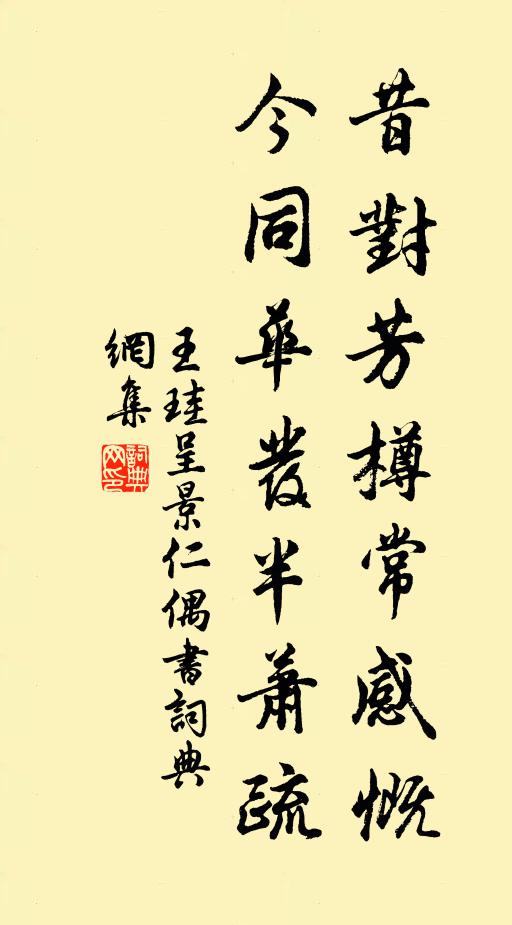 昔對芳樽常感慨
今同華發半蕭疏
王珪呈景仁偶書詞典
網集
詞典
网印